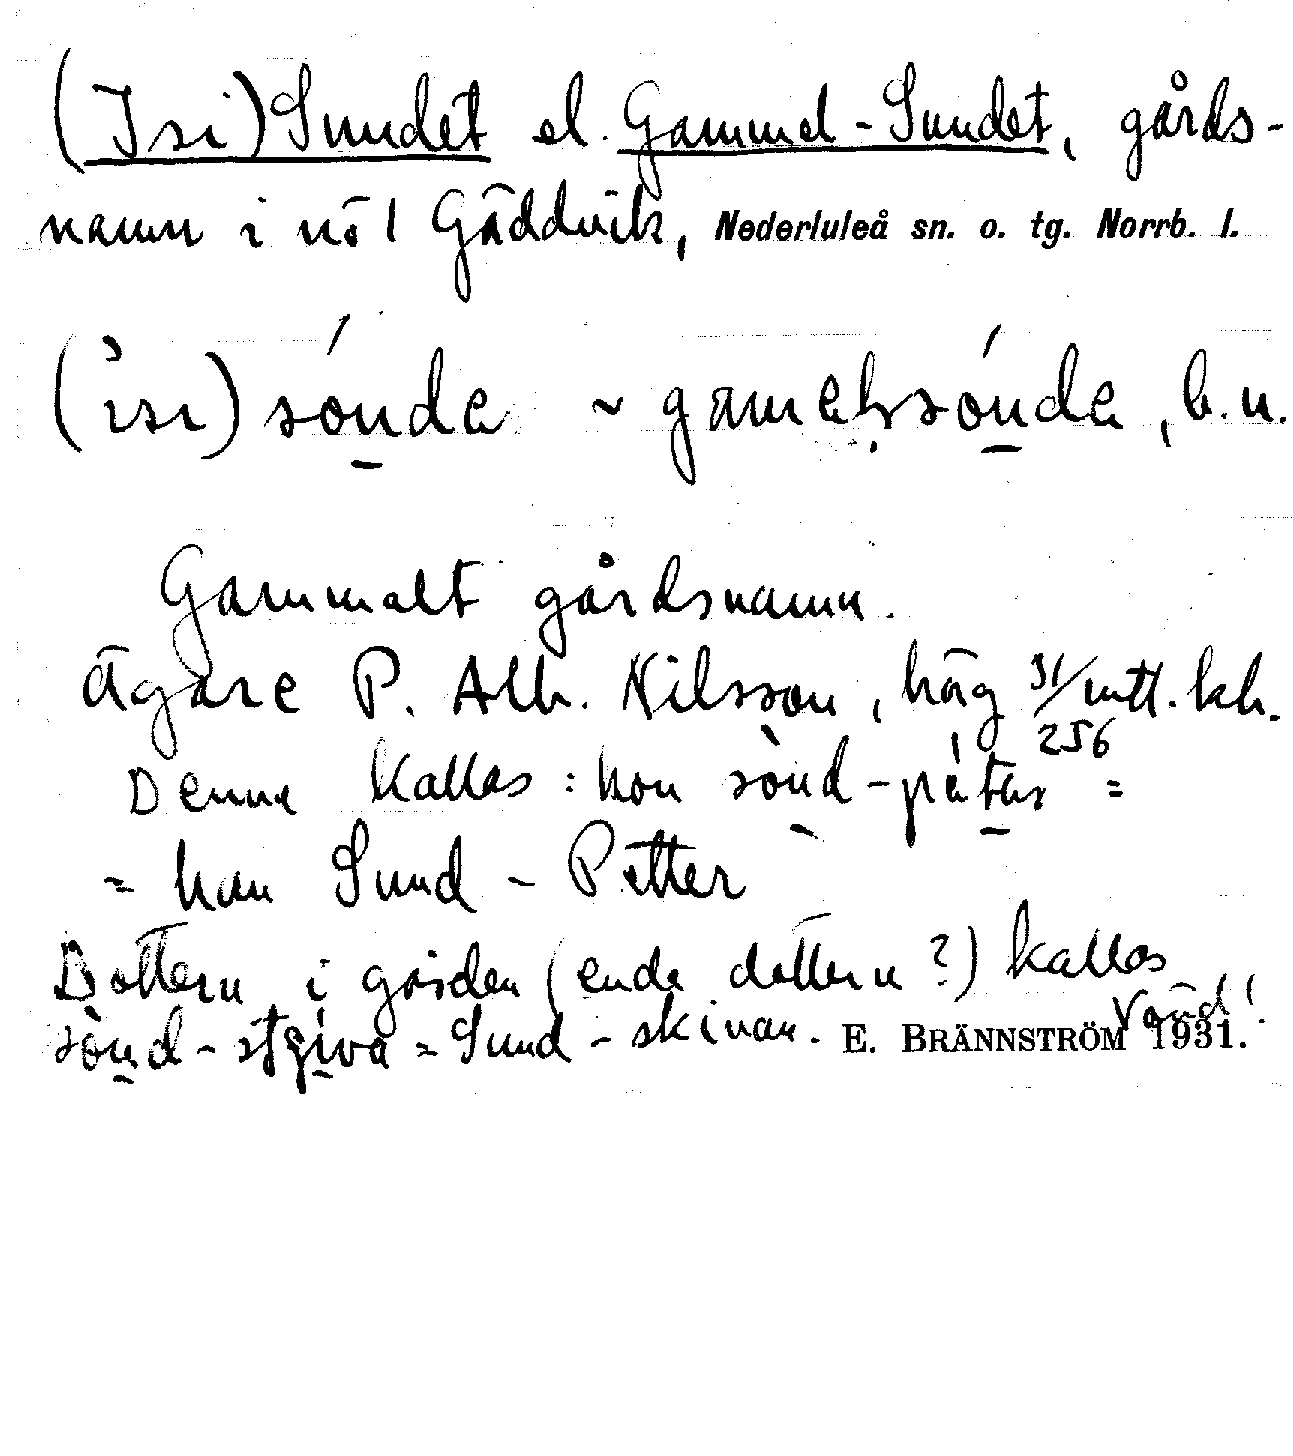 (Isi) Sundet el. Gammel-Sundet, gårds-
namn i nö I Gäddvik, Nederluleå sn. o. tg. Norrb. l.
(ìsı) sónda ~ gamelsónda, b.u.
Gammalt gårdsnamn.
Ägare P. Alb. Nilsson, häg 31/256 mtl. kh.
Denne kallas: hon sònd-pétar =
= han Sund-Petter
Dottern i gården (enda dottern?) kallas
sònd- = Sund-skivan. E. BRÄNNSTRÖM 1931.